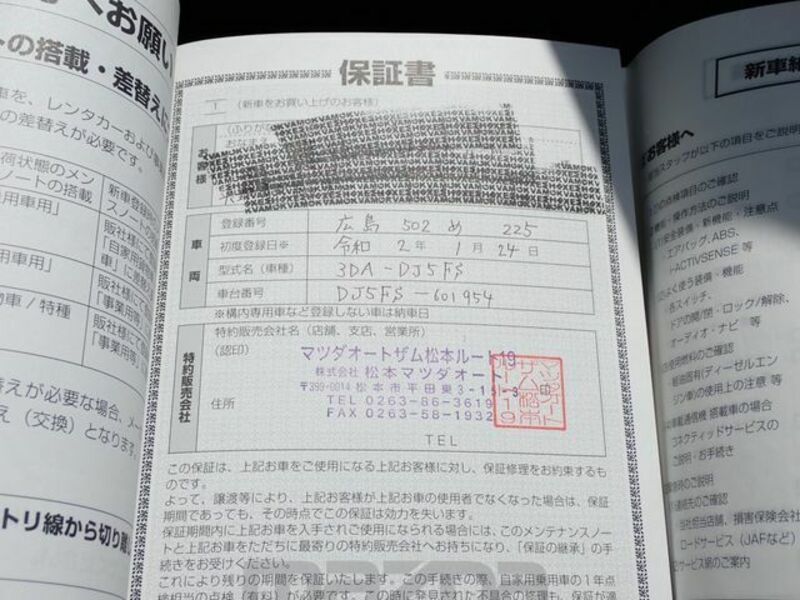 へお願い
トの搭載・差替えに
車を、レンタカーおよび事
の差替えが必要です。
荷状態のメン
スノートの搭載
新車登録時
スノートの
用車用」
販社様にて
「自家用
車」に差替え
用車用」
販社様にて
「事業用
物車/特種
販社様にて
「事業用等
替えが必要な場合、メー
え(交換)となります。
トリ線から切り離
保証書
1
(新車をお買い上げのお客様)
(ふりが
おなまえ
お客様
車両
登録番号
広島 502 め 225
初度登録日※
令和 2年 1月 24日
型式名(車種)
3DA-DJ5FS
車台番号
DJ5FS-601954
※構内専用車など登録しない車は納車日
特約販売会社
特約販売会社名(店舗、支店、営業所)
(認印)
マツダオートザム松本ルート19
株式会社 松本マツダオート
〒399-0014 松本市平田東3-15-3
住所
TEL 0263-86-3619
FAX 0263-58-1932
TEL
この保証は、上記お車をご使用になる上記お客様に対し、保証修理をお約束するも
のです。
よって、譲渡等により、上記お客様が上記お車の使用者でなくなった場合は、保証
期間であっても、その時点でこの保証は効力を失います。
保証期間内に上記お車を入手されご使用になられる場合には、このメンテナンスノー
トと上記お車をただちに最寄りの特約販売会社へお持ちになり、「保証の継承」の手
続きをお受けください。
これにより残りの期間を保証いたします。この手続きの際、自家用乗用車の1年点
検相当の点検(有料)が必要です。この時に発見された不具合の修理も、保証が適
新車納
お客様へ
スタッフが以下の項目をご説明
の点検項目のご確認
機能・操作方法のご説明
(1)安全装備・新機能・注意点
・エアバッグ、ABS、
i-ACTIVSENSE 等
(2)よく使う装備・機能
・各スイッチ、
ドアの開/閉・ロック/解除、
オーディオ・ナビ 等
(3)使用燃料のご確認
・給油固有(ディーゼルエン
ジン車)の使用上の注意 等
車載通信機 搭載車の場合
コネクティッドサービスの
ご説明・お手続き
のご説明
連絡先のご確認
当社担当店舗、損害保険会社
ロードサービス(JAFなど)
サービス網のご案内